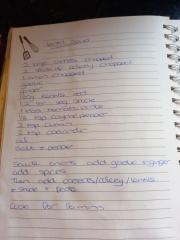 Lentil Soup
2 large carrots chopped
2 sticks of celery chopped
1 onion chopped
garlic
ginger
lentils red
veg stock
tomato
1/2 tsp cayenne pepper
2 tsp cumin
2 tsp coriander
oil
salt + pepper
Sauté onions add garlic + ginger
add spices
Then add carrots/celery/lentils
+ stock +
Cook for